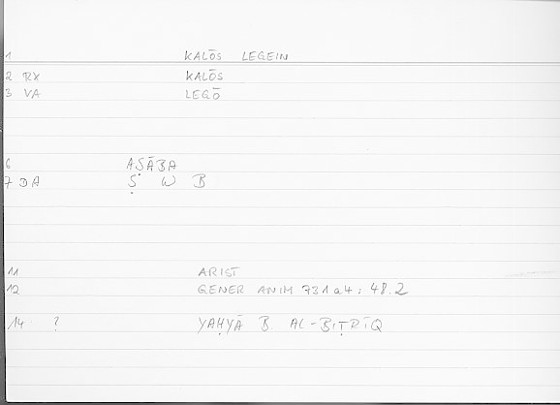 1 KALŌS LEGEIN
2 RX KALŌS
3 VA LEGŌ
6 AṢĀBA
7 DA Ṣ W B
11 ARIST
12 GENER ANIM 731a4 : 48.2
14 ? YAḤYĀ B AL-BIṬRĪQ